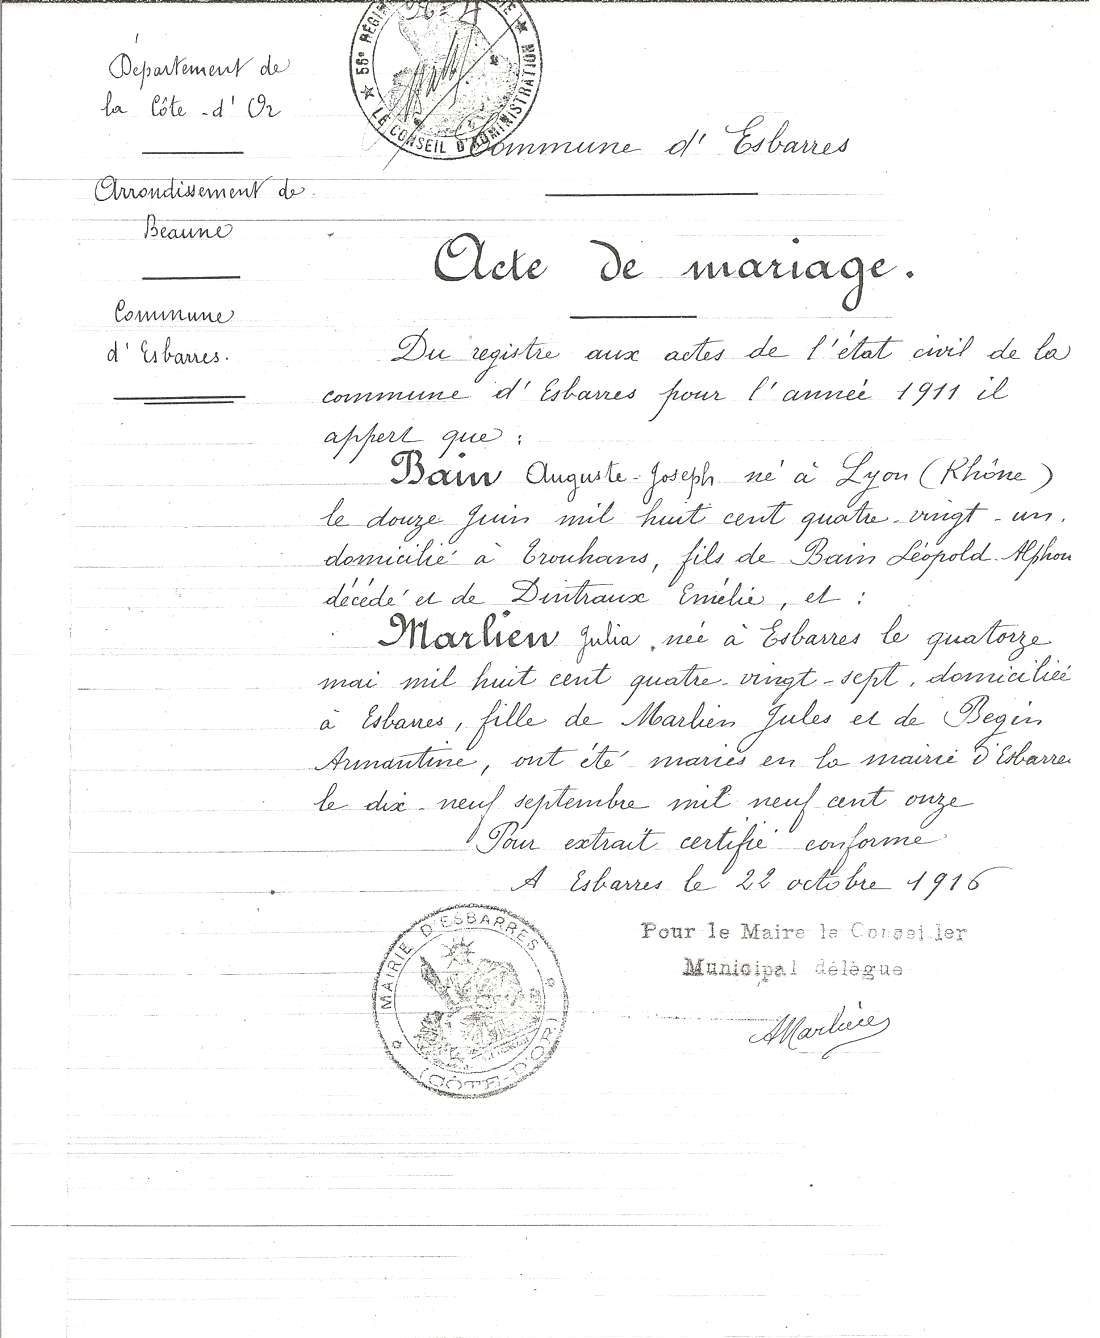 Département de
la Côte-d'Or
Arrondissement de
Beaune
Commune
d'Esbarres.
★ 56e RÉGI
★ LE CONSEIL D'ADMINISTRATION ★
Commune d'Esbarres
Acte de mariage.
Du registre aux actes de l'état civil de la
commune d'Esbarres pour l'année 1911 il
appert que :
Bain Auguste-Joseph né à Lyon (Rhône)
le douze Juin mil huit cent quatre-vingt-un.
domicilié à Trouhans, fils de Bain Léopold-Alphon
décédé et de Dintraux Emélie, et :
Marlien Julia, née à Esbarres le quatorze
mai mil huit cent quatre-vingt-sept, domiciliée
à Esbarres, fille de Marlien Jules et de Begin
Armantine, ont été mariés en la mairie d'Esbarre
le dix-neuf septembre mil neuf cent onze
Pour extrait certifié conforme
A Esbarres le 22 octobre 1916
Pour le Maire le Conseiller
Municipal délègue
MAIRIE D'ESBARRES
(CÔTE-D'OR)